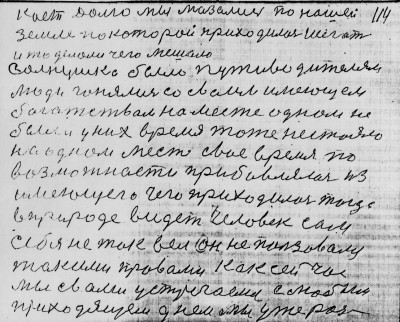 долго мы мазались по нашей 114
земле по которой приходилось шагат
и то делали чего мешало
Солнушко было путиводителям
люди гонялися со своим имеющем
богатствам на месте одном не
были у них время тоже не стояло
на одном месте свое время по
возможности прибавлялась из
имеющего чего приходилась тогда
в природе видет человек сам
себя не так вел он не ползовалу
такими правами как сейчас
мы с вами устричаемся с новым
приходящем днем мы уже